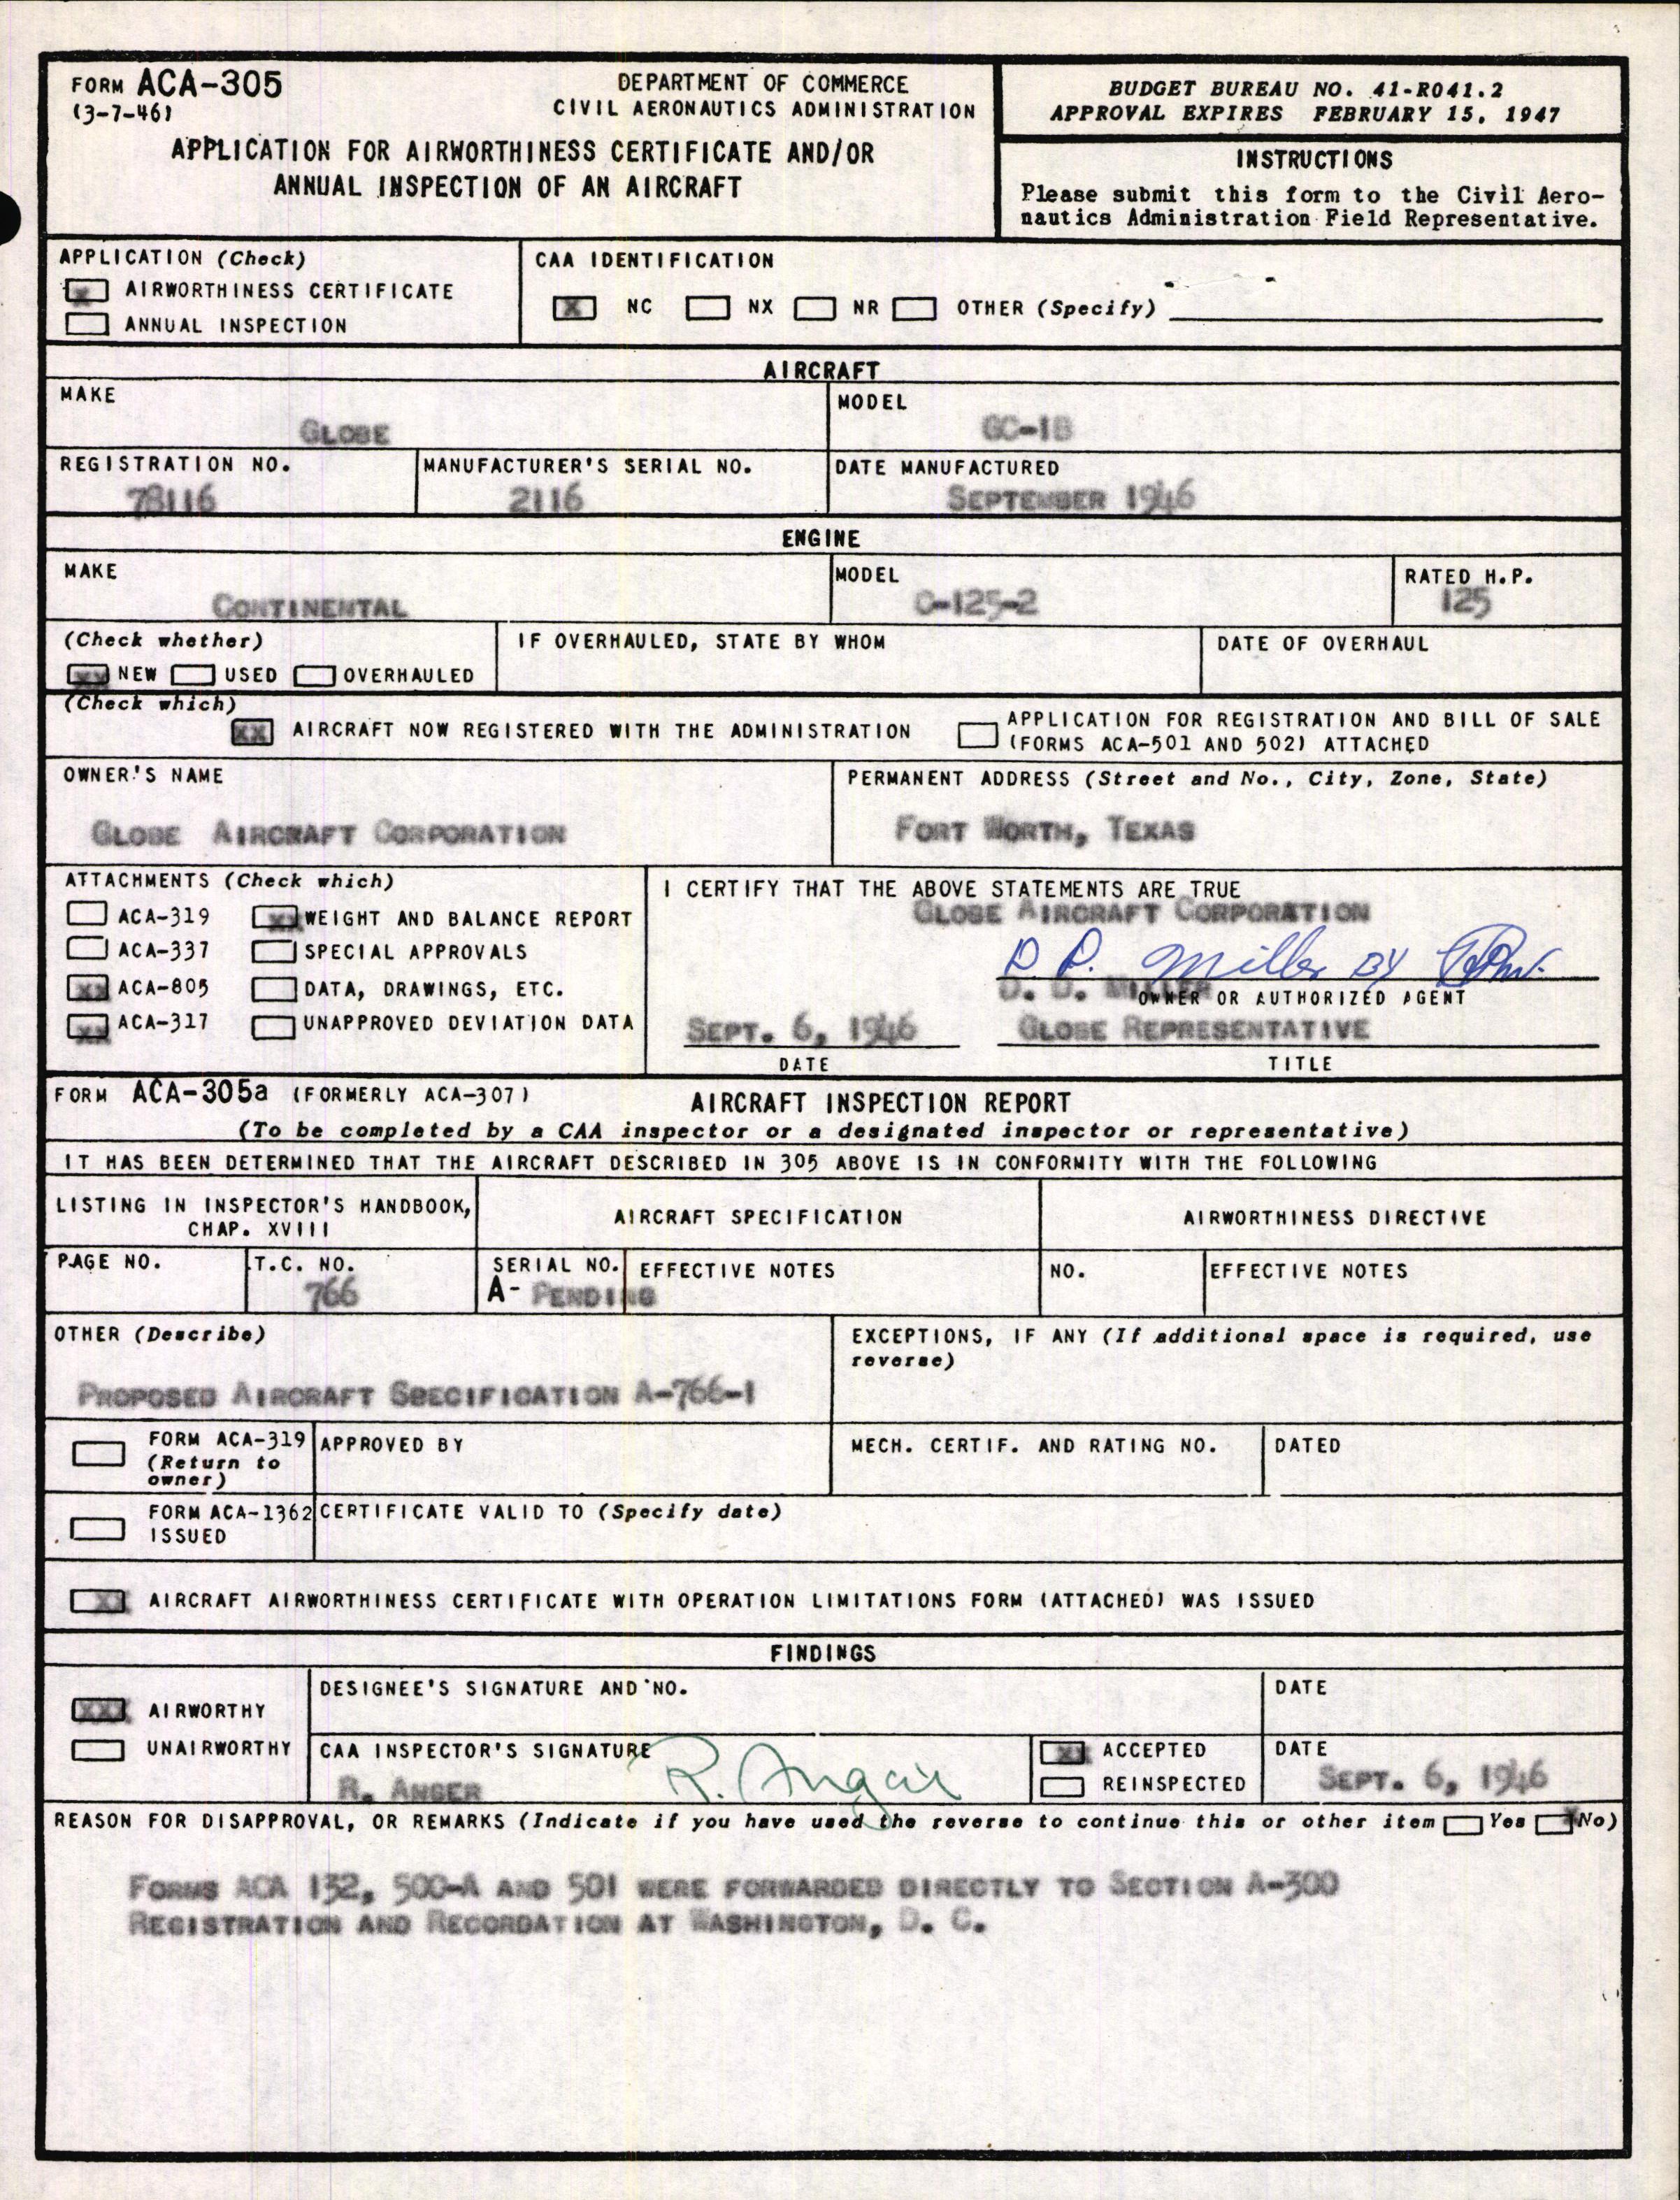 FORM ACA-305
(3-7-46)
DEPARTMENT OF COMMERCE
CIVIL AERONAUTICS ADMINISTRATION
APPLICATION FOR AIRWORTHINESS CERTIFICATE AND/OR
ANNUAL INSPECTION OF AN AIRCRAFT
BUDGET BUREAU NO. 41-R041.2
APPROVAL EXPIRES FEBRUARY 15, 1947
INSTRUCTIONS
Please submit this form to the Civil Aero-
nautics Administration Field Representative.
APPLICATION (Check)
X AIRWORTHINESS CERTIFICATE
ANNUAL INSPECTION
CAA IDENTIFICATION
X NC NX NR OTHER (Specify)
AIRCRAFT
MAKE
GLOBE
MODEL
GC-1B
REGISTRATION NO.
78116
MANUFACTURER'S SERIAL NO.
2116
DATE MANUFACTURED
SEPTEMBER 1946
ENGINE
MAKE
CONTINENTAL
MODEL
C-125-2
RATED H.P.
125
(Check whether)
XX NEW USED OVERHAULED
IF OVERHAULED, STATE BY WHOM
DATE OF OVERHAUL
(Check which)
XX AIRCRAFT NOW REGISTERED WITH THE ADMINISTRATION
APPLICATION FOR REGISTRATION AND BILL OF SALE
(FORMS ACA-501 AND 502) ATTACHED
OWNER'S NAME
GLOBE AIRCRAFT CORPORATION
PERMANENT ADDRESS (Street and No., City, Zone, State)
FORT WORTH, TEXAS
ATTACHMENTS (Check which)
ACA-319 XX WEIGHT AND BALANCE REPORT
ACA-337 SPECIAL APPROVALS
XX ACA-805 DATA, DRAWINGS, ETC.
XX ACA-317 UNAPPROVED DEVIATION DATA
I CERTIFY THAT THE ABOVE STATEMENTS ARE TRUE
GLOBE AIRCRAFT CORPORATION
Miller BY
MILLER
OWNER OR AUTHORIZED AGENT
SEPT. 6, 1946
DATE
GLOBE REPRESENTATIVE
TITLE
FORM ACA-305a (FORMERLY ACA-307)
AIRCRAFT INSPECTION REPORT
(To be completed by a CAA inspector or a designated inspector or representative)
IT HAS BEEN DETERMINED THAT THE AIRCRAFT DESCRIBED IN 305 ABOVE IS IN CONFORMITY WITH THE FOLLOWING
LISTING IN INSPECTOR'S HANDBOOK,
CHAP. XVIII
AIRCRAFT SPECIFICATION
AIRWORTHINESS DIRECTIVE
PAGE NO.
T.C. NO.
766
SERIAL NO.
A- PENDING
EFFECTIVE NOTES
NO.
EFFECTIVE NOTES
OTHER (Describe)
PROPOSED AIRCRAFT SPECIFICATION A-766-1
EXCEPTIONS, IF ANY (If additional space is required, use
reverse)
FORM ACA-319
(Return to
owner)
APPROVED BY
MECH. CERTIF. AND RATING NO.
DATED
FORM ACA-1362
ISSUED
CERTIFICATE VALID TO (Specify date)
XX AIRCRAFT AIRWORTHINESS CERTIFICATE WITH OPERATION LIMITATIONS FORM (ATTACHED) WAS ISSUED
FINDINGS
XXX AIRWORTHY
UNAIRWORTHY
DESIGNEE'S SIGNATURE AND NO.
DATE
CAA INSPECTOR'S SIGNATURE
R. ANGER
XX ACCEPTED
REINSPECTED
DATE
SEPT. 6, 1946
REASON FOR DISAPPROVAL, OR REMARKS (Indicate if you have used the reverse to continue this or other item Yes X No)
FORMS ACA 132, 500-A AND 501 WERE FORWARDED DIRECTLY TO SECTION A-300
REGISTRATION AND RECORDATION AT WASHINGTON, D. C.